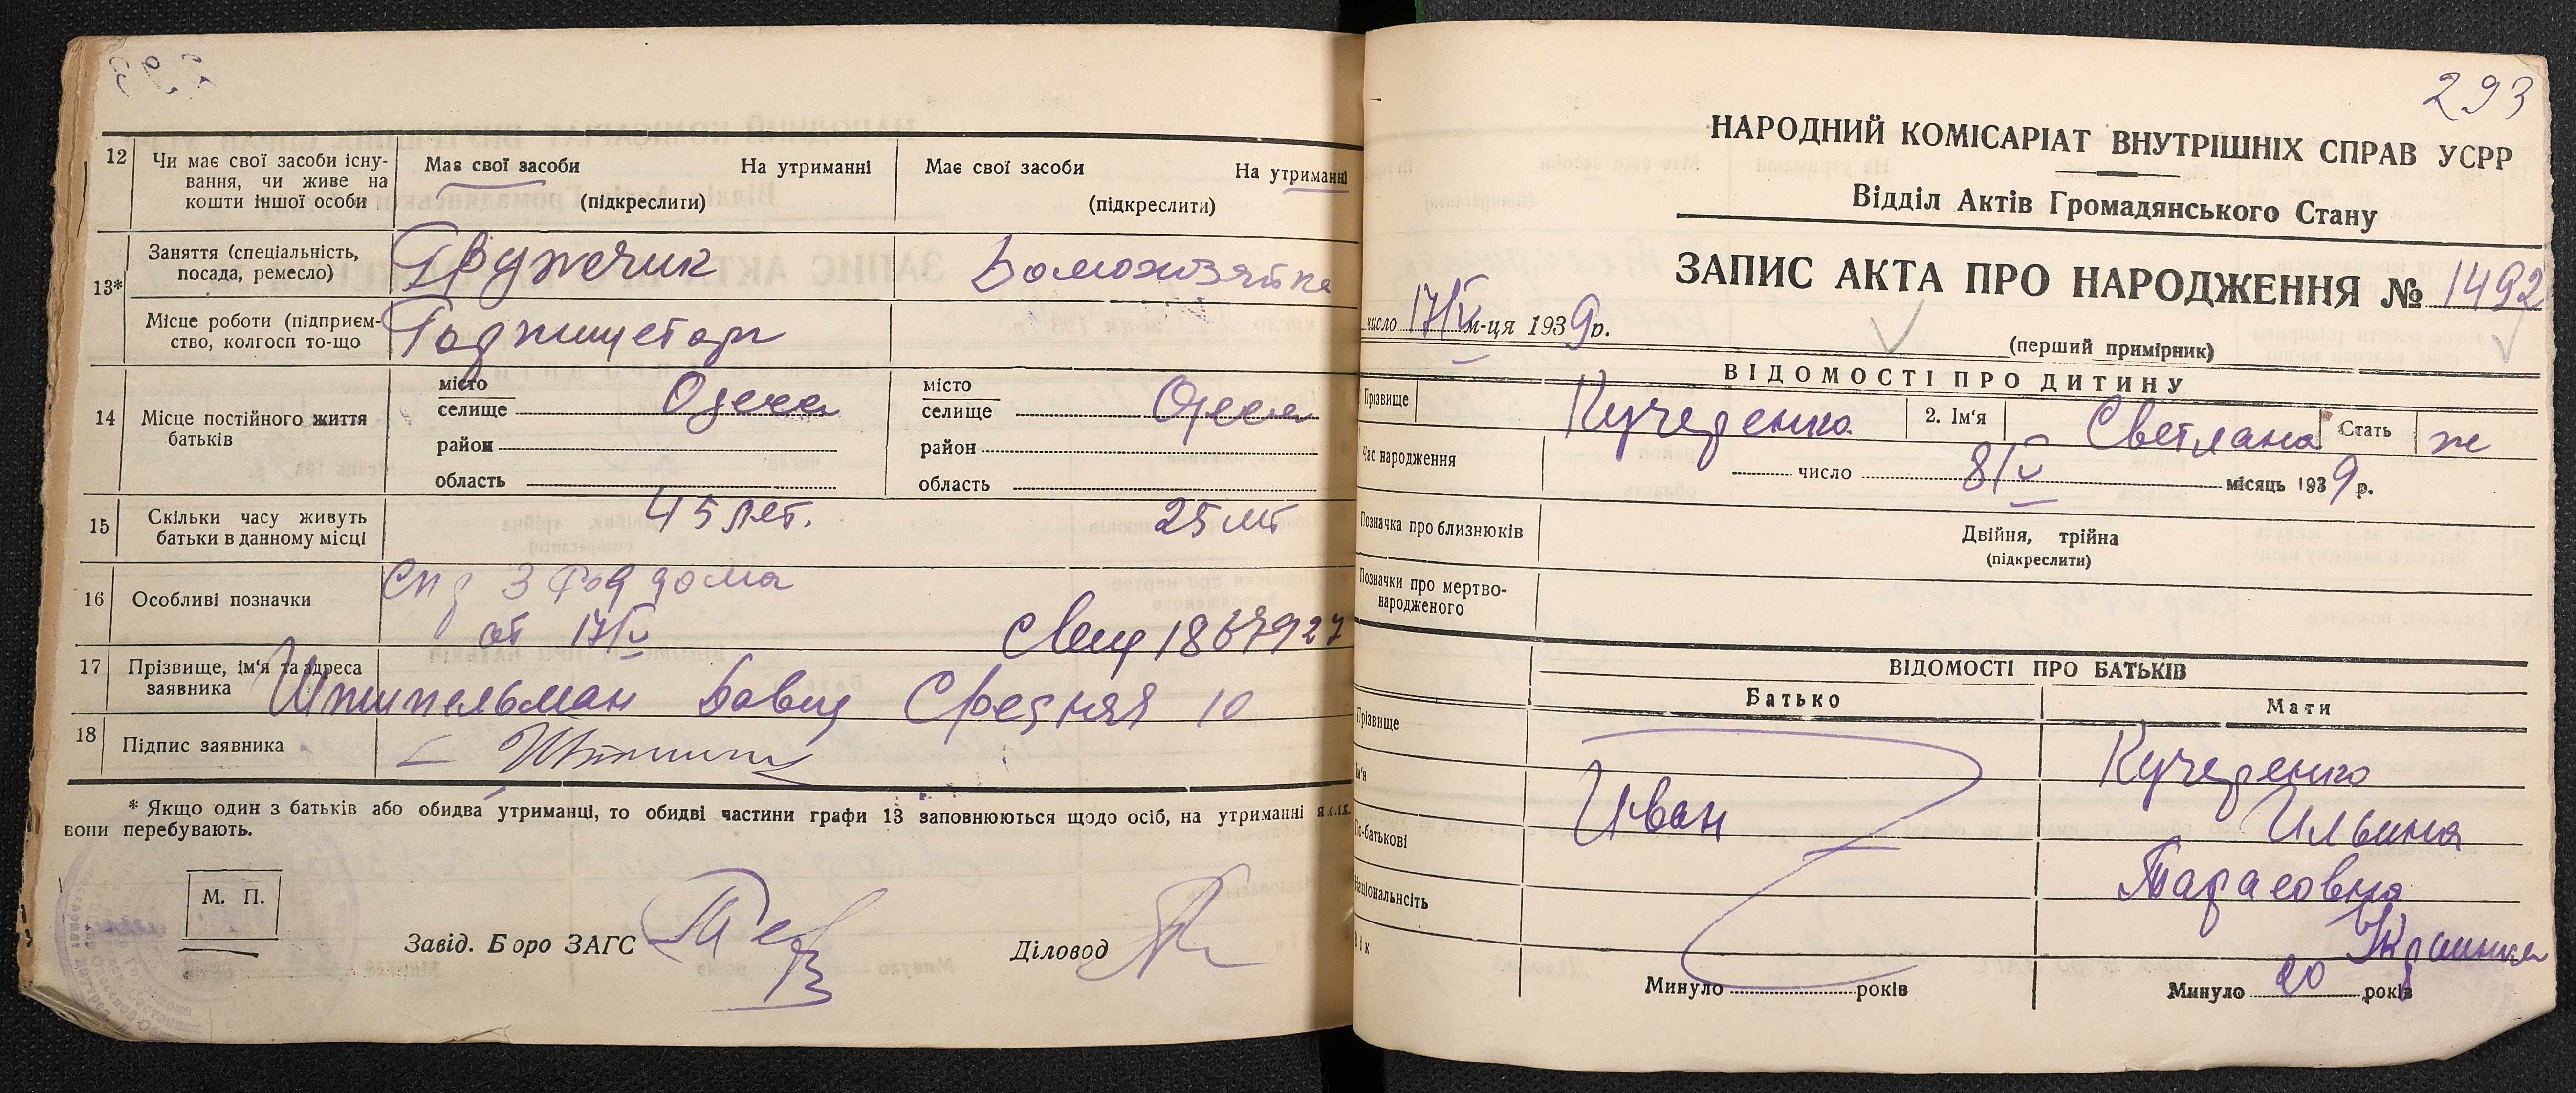 12
Чи має свої засоби існу-
вання, чи живе на
кошти іншої особи
Має свої засоби На утриманні
(підкреслити)
Має свої засоби На утриманні
(підкреслити)
13*
Заняття (спеціальність,
посада, ремесло)
Домохозяйка
Місце роботи (підприєм-
ство, колгосп то-що
14
Місце постійного життя
батьків
місто
селище Одесса
район
область
місто
селище Одесса
район
область
15
Скільки часу живуть
батьки в данному місці
45 лет.
25 лет
16
Особливі позначки
Спр 3 Роддома
от 17/V
Свид 1867927
17
Прізвище, ім'я та адреса
заявника
Шпипельман Давид Средняя 10
18
Підпис заявника
* Якщо один з батьків або обидва утриманці, то обидві частини графи 13 заповнюються щодо осіб, на утриманні яких
вони перебувають.
М. П.
Завід. Бюро ЗАГС
Діловод
293
НАРОДНИЙ КОМІСАРІАТ ВНУТРІШНІХ СПРАВ УСРР
Відділ Актів Громадянського Стану
ЗАПИС АКТА ПРО НАРОДЖЕННЯ № 1492
число 17/V м-ця 1939р.
(перший примірник)
ВІДОМОСТІ ПРО ДИТИНУ
Прізвище Кучеренко 2. Ім'я Светлана Стать ж
Час народження число 8/V місяць 1939 р.
Позначка про близнюків
Двійня, трійна
(підкреслити)
Позначки про мертво-
народженого
ВІДОМОСТІ ПРО БАТЬКІВ
Батько Мати
Прізвище Кучеренко
Ім'я Иван Ильина
По-батькові Тарасовна
Національнсіть Украинка
Вік Минуло років Минуло 20 років